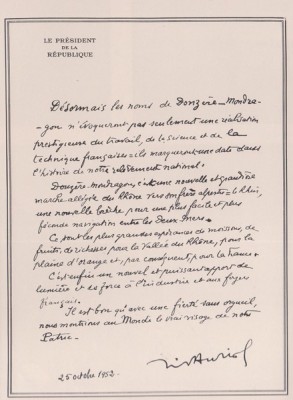 LE PRÉSIDENT
DE LA
RÉPUBLIQUE
Désormais les noms de Donzère-Mondra-
gon n'évoqueront pas seulement une réalisation
prestigieuse du travail, de la science et de la
technique françaises : ils marqueront une date dans
l'histoire de notre relèvement national.
Donzère-Mondragon, c'est une nouvelle et grandiose
marche allègre du Rhône vers son frère alpestre le Rhin,
une nouvelle brèche pour une plus facile et plus
féconde navigation entre les Deux Mers.
Ce sont les plus grandes espérances de moisson, de
fruits, de richesses pour la Vallée du Rhône, pour la
plaine d'Orange et, par conséquent, pour la France.
C'est enfin un nouvel et puissant apport de
lumière et de force à l'industrie et aux foyers
français.
Il est bon qu'avec une fierté sans orgueil,
nous montrions au Monde le vrai visage de notre
Patrie.
25 octobre 1952.